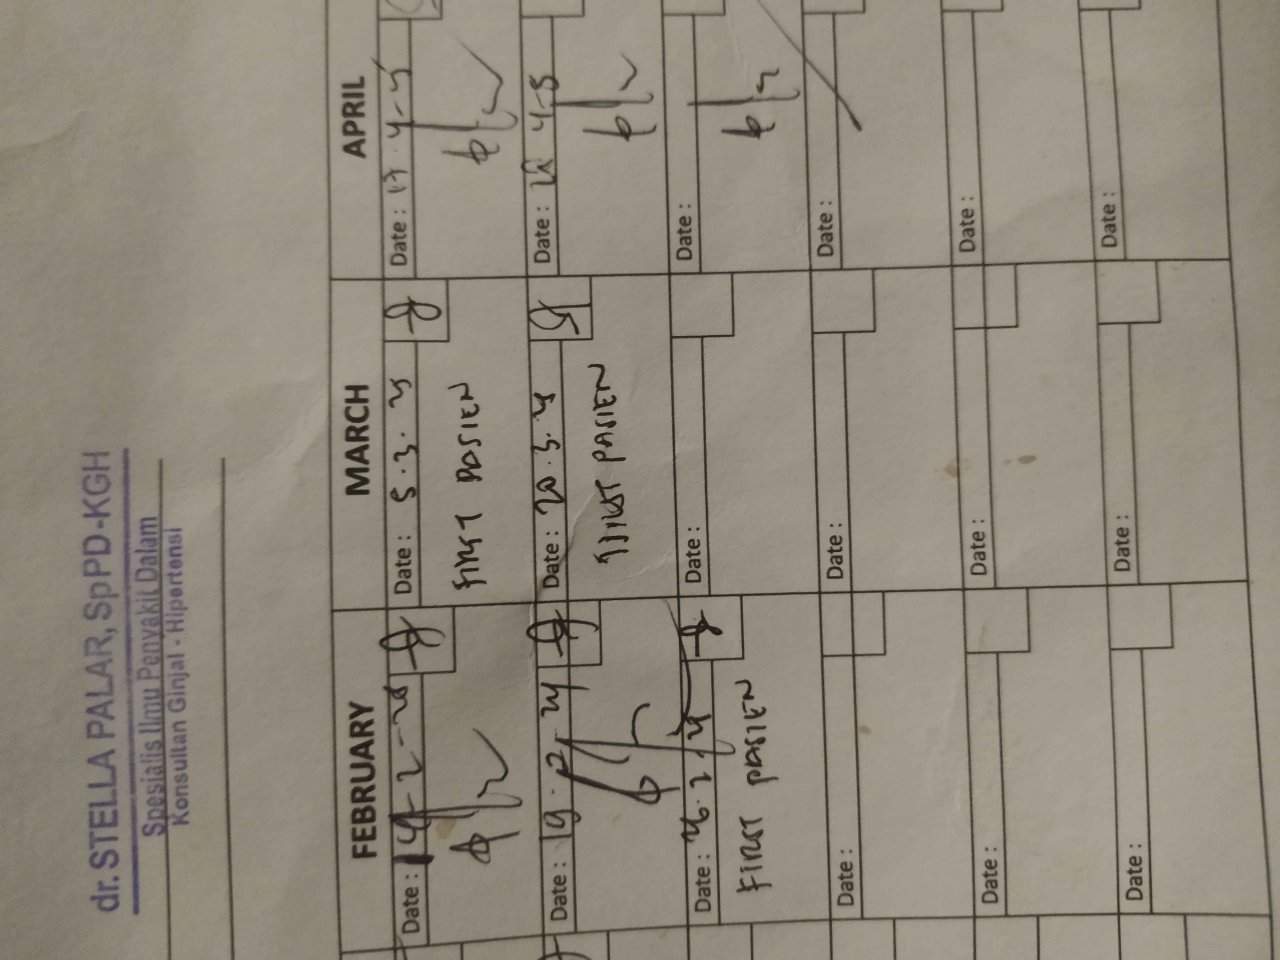 dr. STELLA PALAR, SpPD-KGH
Spesialis Ilmu Penyakit Dalam
Konsultan Ginjal - Hipertensi
FEBRUARY MARCH APRIL
Date : Date : 5.3. Date : 17.4-
FIRST PASIEN
Date : 19. Date : 20.3. Date :
FIRST PASIEN
Date : Date : Date :
FIRST PASIEN
Date : Date : Date :
Date : Date : Date :
Date : Date : Date :